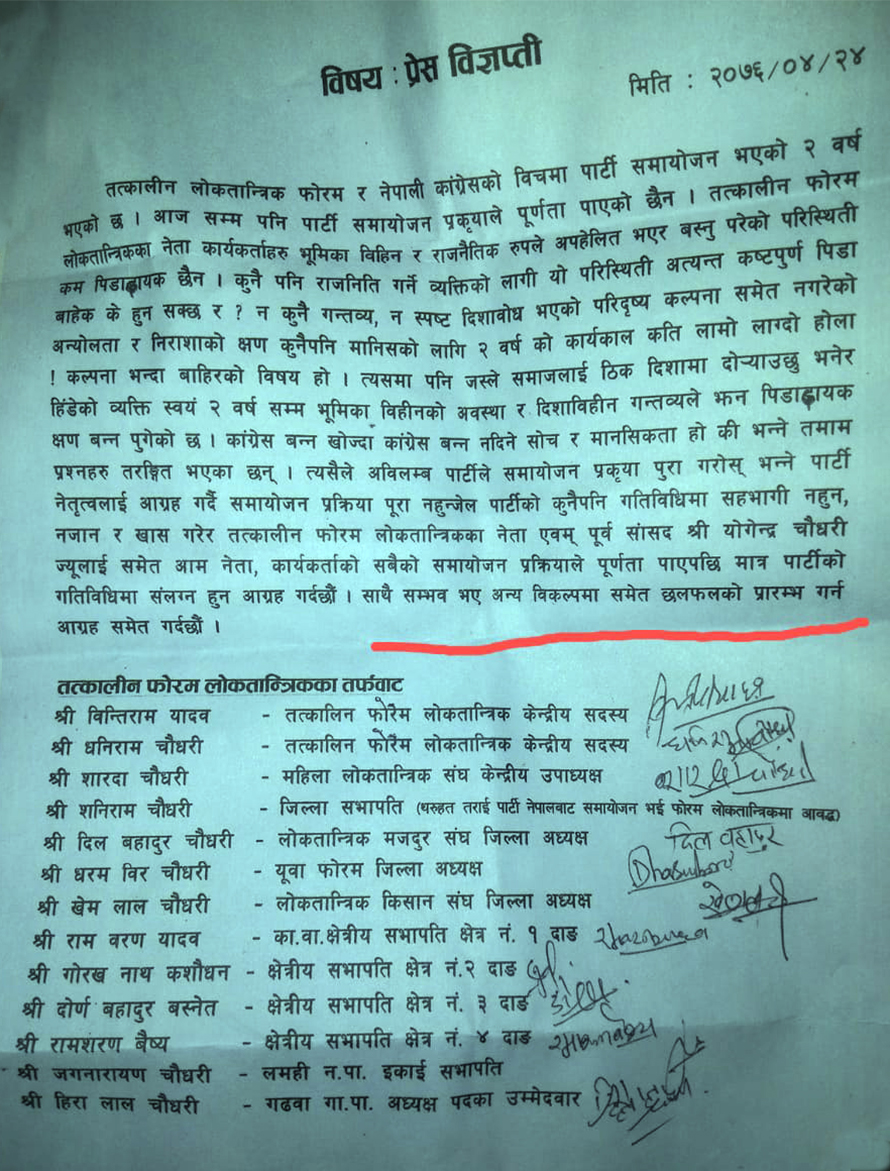 विषय : प्रेस विज्ञप्ती
मिति : २०७६/०४/२४
तत्कालीन लोकतान्त्रिक फोरम र नेपाली कांग्रेसको विचमा पार्टी समायोजन भएको २ वर्ष
भएको छ । आज सम्म पनि पार्टी समायोजन प्रकृयाले पूर्णता पाएको छैन । तत्कालीन फोरम
लोकतान्त्रिकका नेता कार्यकर्ताहरु भूमिका विहिन र राजनैतिक रुपले अपहेलित भएर बस्नु परेको परिस्थिती
कम पिडादायक छैन । कुनै पनि राजनिति गर्ने व्यक्तिको लागी यो परिस्थिती अत्यन्त कष्टपुर्ण पिडा
बाहेक के हुन सक्छ र ? न कुनै गन्तव्य, न स्पष्ट दिशावोध भएको परिदृष्य कल्पना समेत नगरेको
अन्योलता र निराशाको क्षण कुनैपनि मानिसको लागि २ वर्ष को कार्यकाल कति लामो लाग्दो होला
! कल्पना भन्दा बाहिरको विषय हो । त्यसमा पनि जस्ले समाजलाई ठिक दिशामा दोऱ्याउछु भनेर
हिंडेको व्यक्ति स्वयं २ वर्ष सम्म भूमिका विहीनको अवस्था र दिशाविहीन गन्तव्यले झन पिडादायक
क्षण बन्न पुगेको छ । कांग्रेस बन्न खोज्दा कांग्रेस बन्न नदिने सोच र मानसिकता हो की भन्ने तमाम
प्रश्नहरु तरङ्गित भएका छन् । त्यसैले अविलम्ब पार्टीले समायोजन प्रकृया पुरा गरोस् भन्ने पार्टी
नेतृत्वलाई आग्रह गर्दै समायोजन प्रक्रिया पूरा नहुन्जेल पार्टीको कुनैपनि गतिविधिमा सहभागी नहुन,
नजान र खास गरेर तत्कालीन फोरम लोकतान्त्रिकका नेता एवम् पूर्व सांसद श्री योगेन्द्र चौधरी
ज्यूलाई समेत आम नेता, कार्यकर्ताको सबैको समायोजन प्रक्रियाले पूर्णता पाएपछि मात्र पार्टीको
गतिविधिमा संलग्न हुन आग्रह गर्दछौं । साथै सम्भव भए अन्य विकल्पमा समेत छलफलको प्रारम्भ गर्न
आग्रह समेत गर्दछौं ।
तत्कालीन फोरम लोकतान्त्रिकका तर्फवाट
श्री विन्तिराम यादव - तत्कालिन फोरम लोकतान्त्रिक केन्द्रीय सदस्य
श्री धनिराम चौधरी - तत्कालिन फोरम लोकतान्त्रिक केन्द्रीय सदस्य
श्री शारदा चौधरी - महिला लोकतान्त्रिक संघ केन्द्रीय उपाध्यक्ष
श्री शनिराम चौधरी - जिल्ला सभापति (थरुहत तराई पार्टी नेपालबाट समायोजन भई फोरम लोकतान्त्रिकमा आवद्ध)
श्री दिल बहादुर चौधरी - लोकतान्त्रिक मजदुर संघ जिल्ला अध्यक्ष दिल वहादुर
श्री धरम विर चौधरी - यूवा फोरम जिल्ला अध्यक्ष
श्री खेम लाल चौधरी - लोकतान्त्रिक किसान संघ जिल्ला अध्यक्ष
श्री राम वरण यादव - का.वा.क्षेत्रीय सभापति क्षेत्र नं. १ दाङ
श्री गोरख नाथ कशौधन - क्षेत्रीय सभापति क्षेत्र नं.२ दाङ
श्री दोर्ण बहादुर बस्नेत - क्षेत्रीय सभापति क्षेत्र नं. ३ दाङ
श्री रामशरण बैष्य - क्षेत्रीय सभापति क्षेत्र नं. ४ दाङ
श्री जगनारायण चौधरी - लमही न.पा. इकाई सभापति
श्री हिरा लाल चौधरी - गढवा गा.पा. अध्यक्ष पदका उम्मेदवार